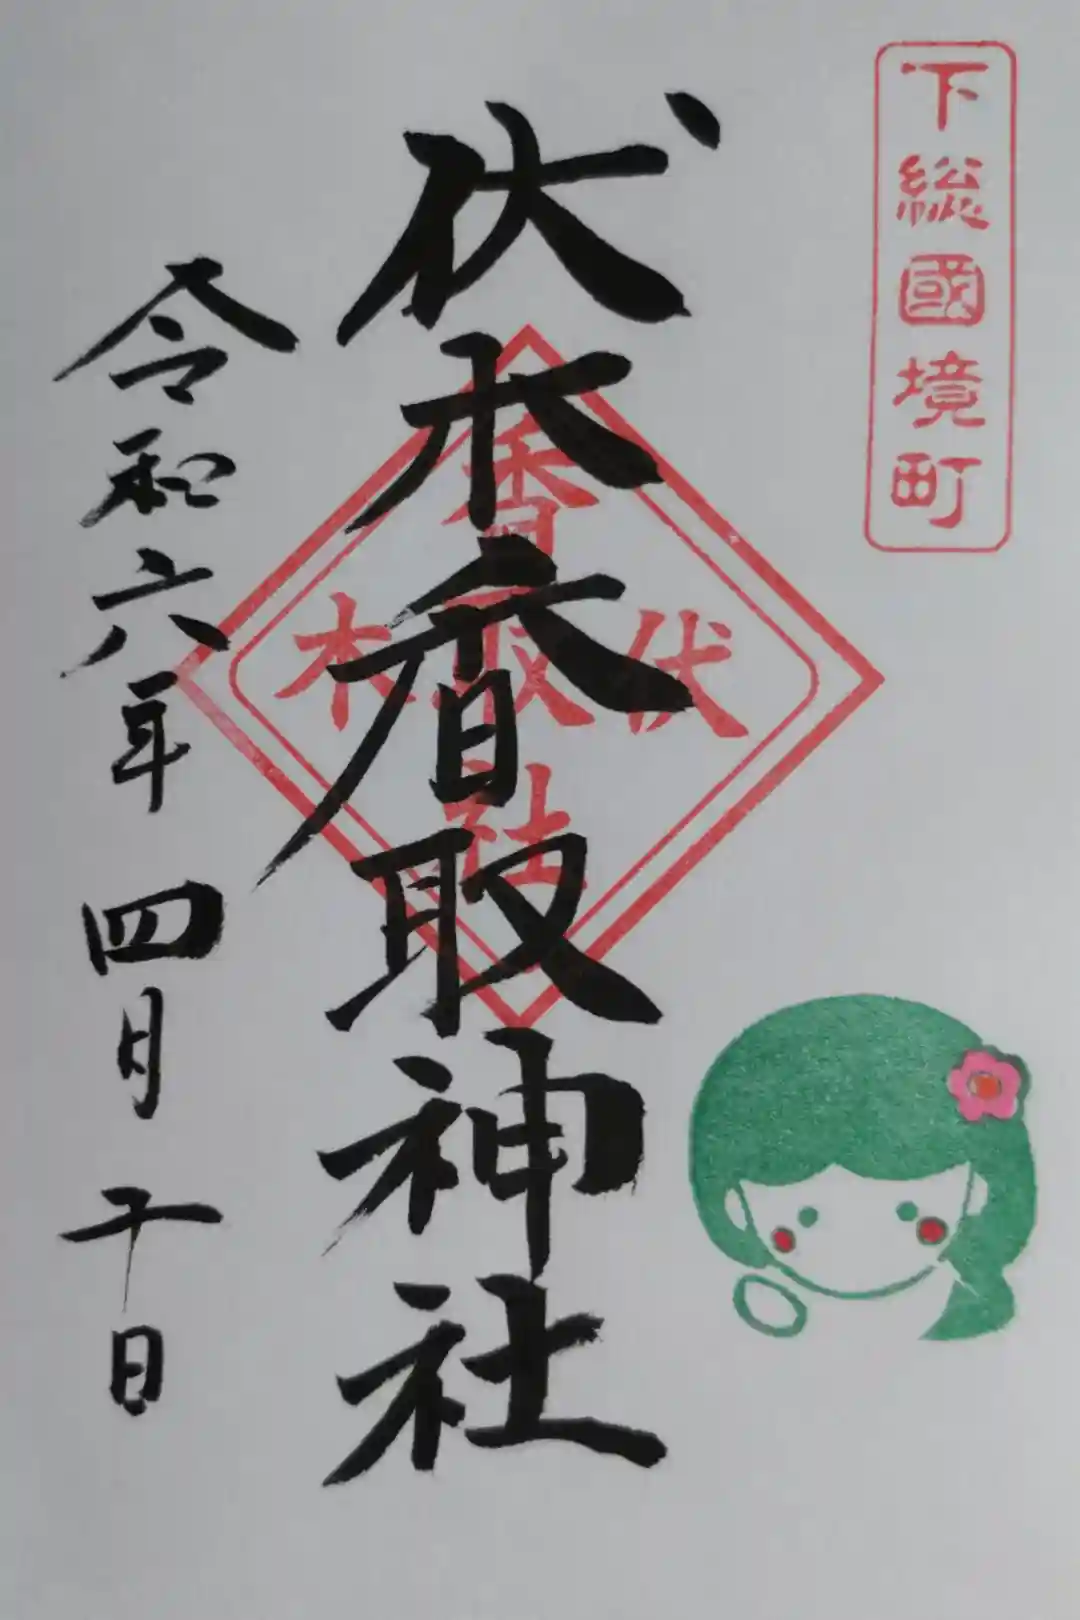 下総國境町
伏木香取神社
伏木
香取社
令和六年四月十日